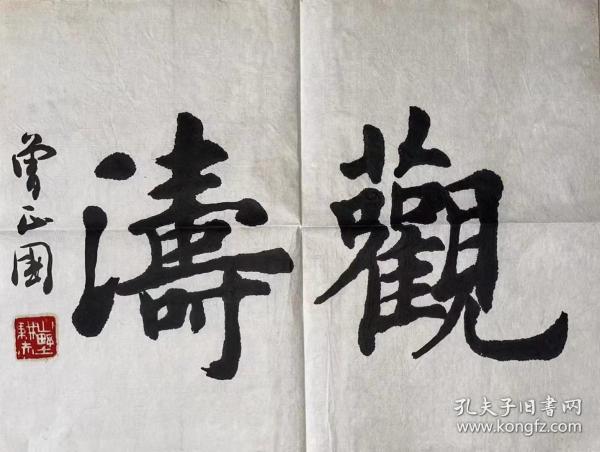 觀濤
曾正國
孔夫子旧書网
www.kongfz.com